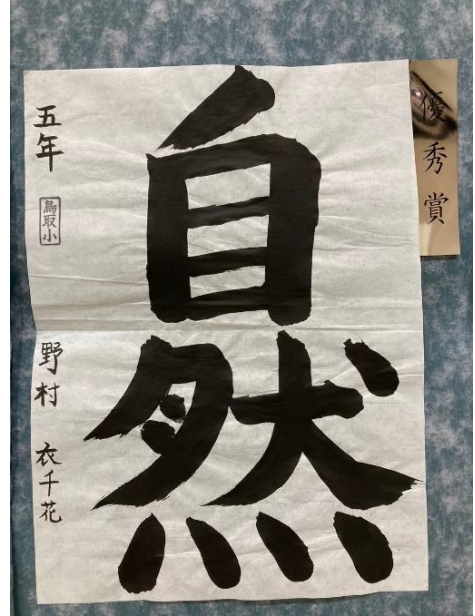 優秀賞
自然
五年
鳥取小
野村 衣千花